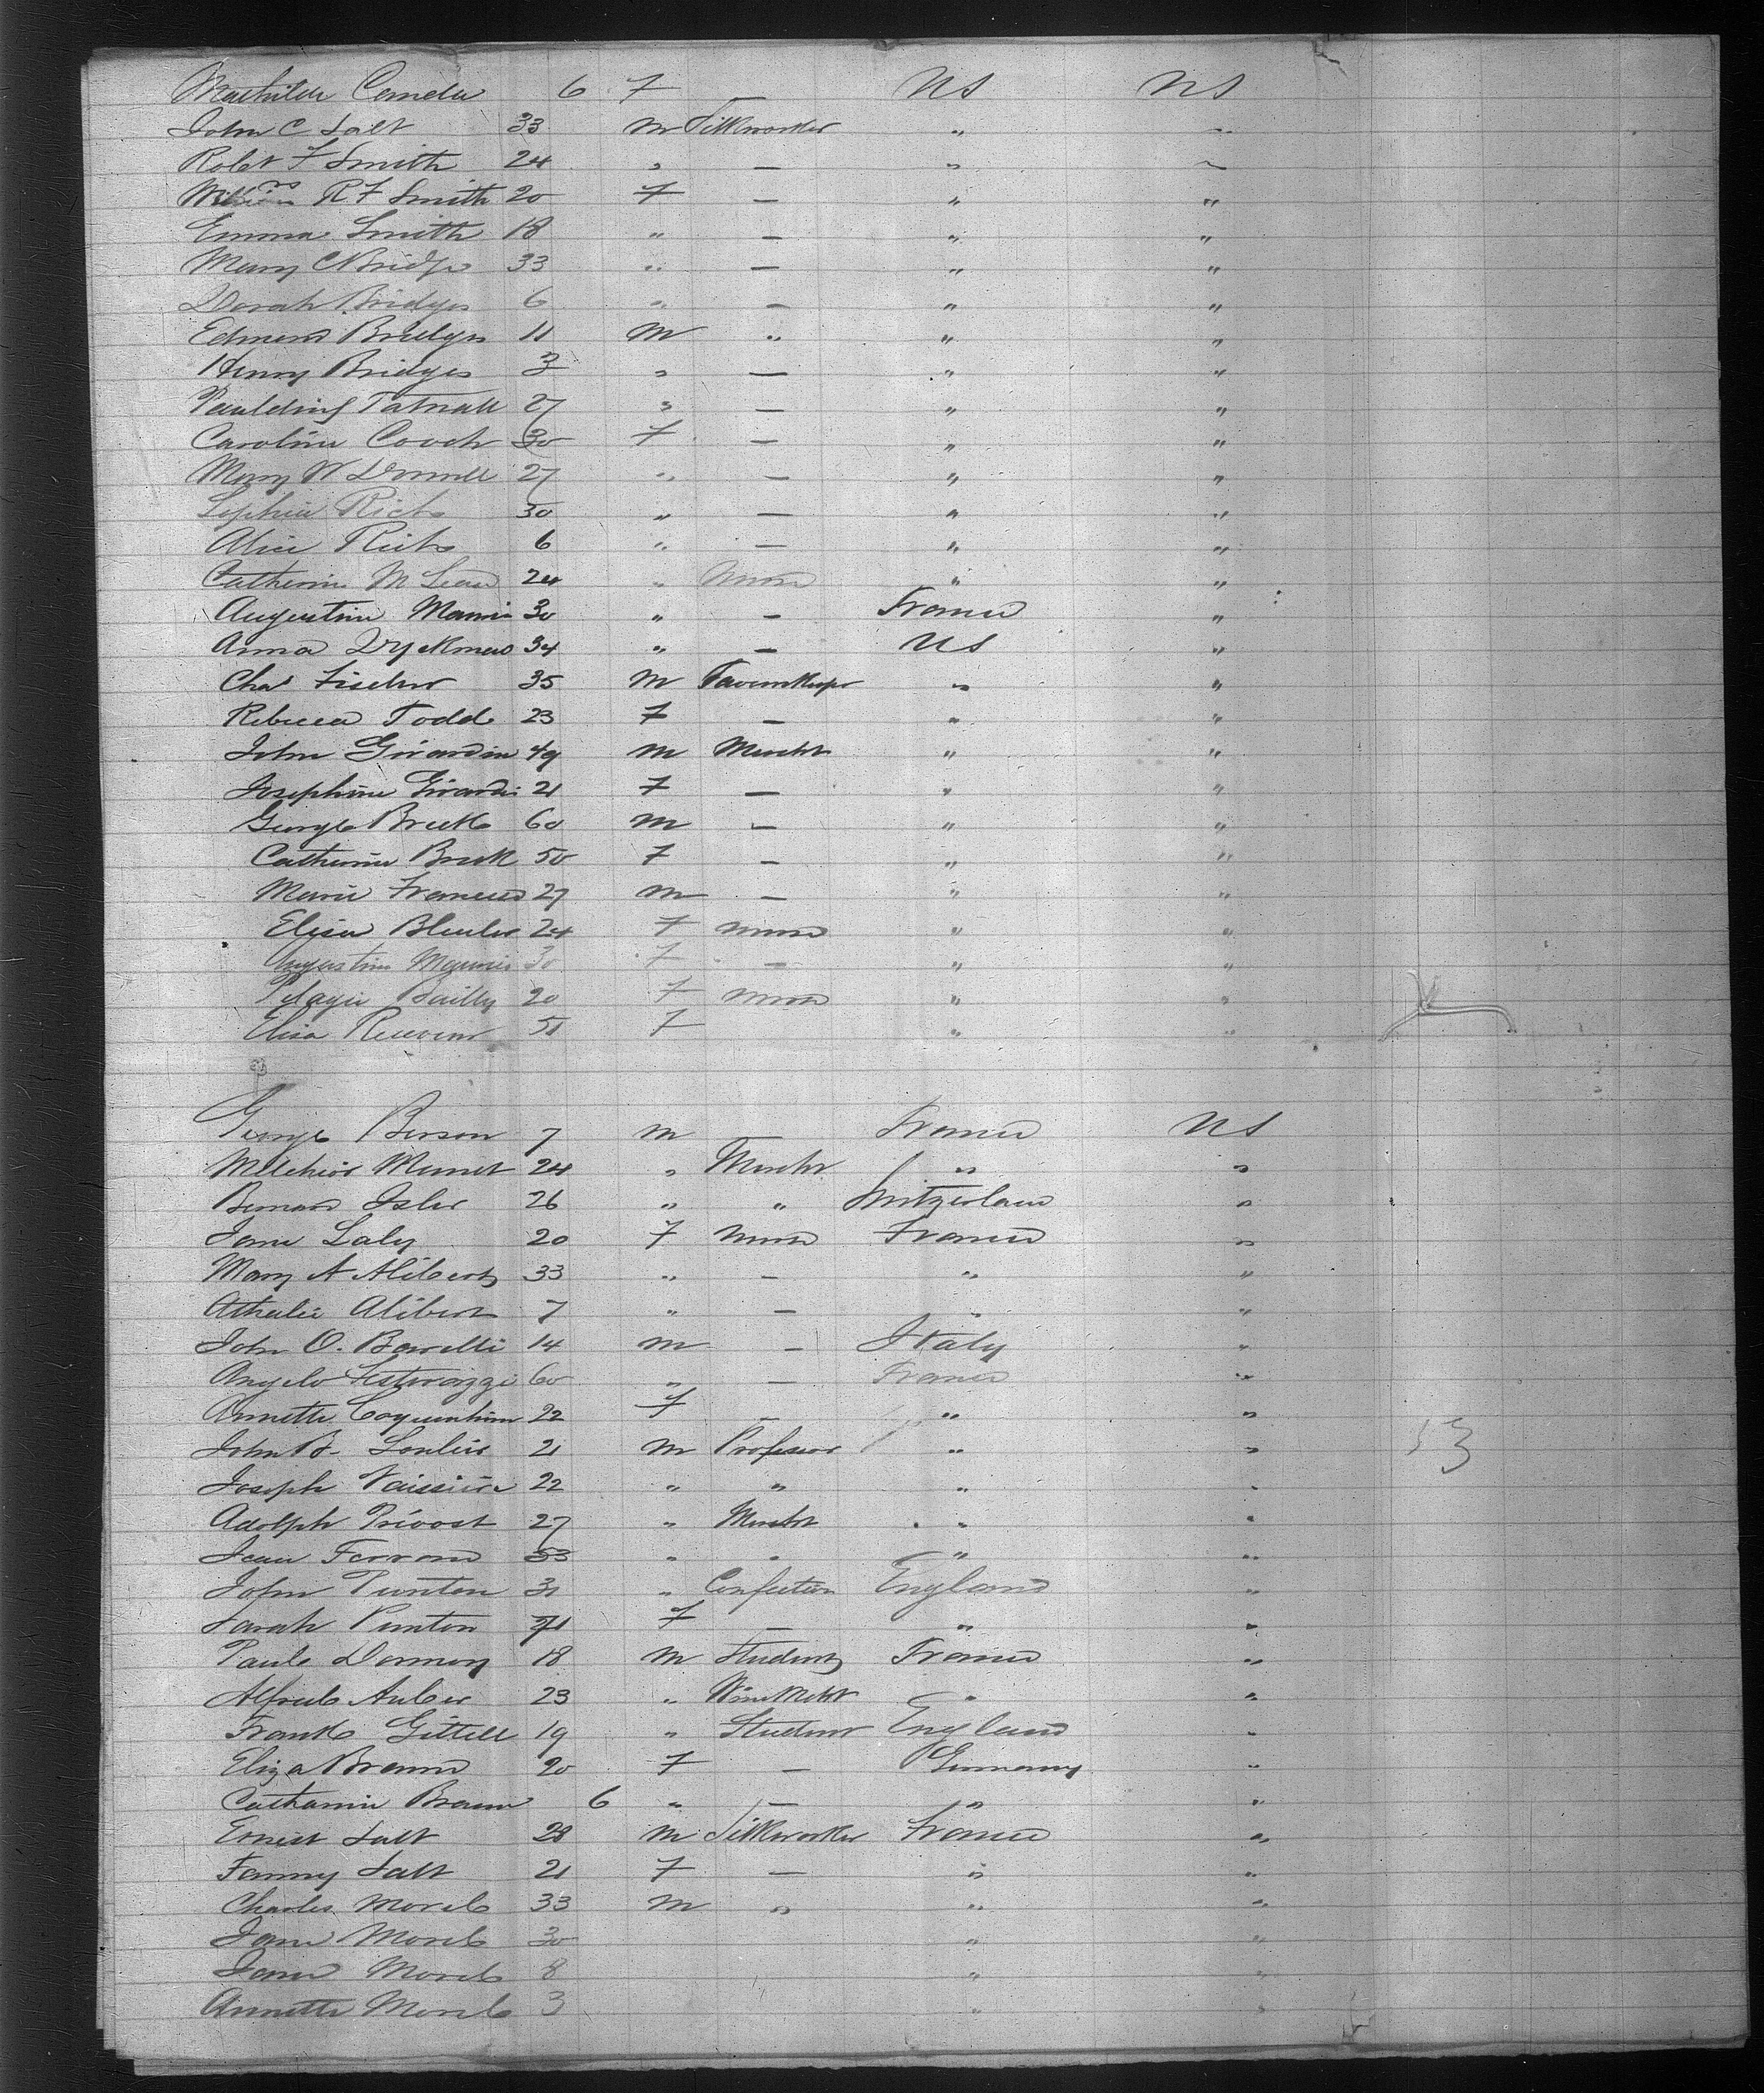 Mathilde Cemeda 6 F — US US
John C Salt 33 m Silkworker " "
Robt F Smith 24 " — " "
R F Smith 20 F — " "
Emma Smith 18 " — " "
Mary C Bridges 33 " — " "
Dorah Bridges 6 " — " "
Edmond Bridges 11 m " " "
Henry Bridges 3 " — " "
Paulding Tatnall 27 " — " "
Caroline Cooch 30 F — " "
Mary W Donnell 27 " — " "
Sophia Rich 30 " — " "
Alice Rich 6 " — " "
Catherine M Lean 24 " Nurse " "
Augustine Mamie 30 " — France "
Anna Dyckman 34 " — US "
Chas Fischer 35 m Tavernkeeper " "
Rebecca Todd 23 F — " "
John Girardin 49 m Mercht " "
Josephine Girardin 21 F — " "
George Breck 60 m — " "
Catherine Breck 50 F — " "
Marie Francess 27 m — " "
Elisa Bleuler 24 F Nurse " "
Augustine Meunier 30 F — " "
Pelagie Bailly 20 F Nurse " "
Elisa 51 F " "
George Berson 7 m — France US
Melchior Munet 24 " Mercht " "
Bernard Isler 26 " " Switzerland "
Jane Laly 20 F Nurse France "
Mary A Alibert 33 " — " "
Athalie Alibert 7 " — " "
John O. Borrelli 14 m — Italy "
Angelo Festorazzi 60 " — France "
Annette 22 F — " "
John B. Soulier 21 m Professor " "
Joseph Vaissiere 22 " " " "
Adolph Privost 27 " Mercht " "
Jean Ferrand 33 " " " "
John Punton 31 " Confection England "
Sarah Punton 21 F — " "
Paul Dormoy 18 m Student France "
Alfred Auber 23 " Wine Mcht " "
Frank Gittell 19 " Student England "
Eliza Braun 20 F — Germany "
Catharine Braun 6 " — " "
Ernest Salt 28 m Silkworker France "
Fanny Salt 21 F — " "
Charles Morel 33 m " " "
Jane Morel 30 " "
Jane Morel 8 " "
Annette Morel 3 " "
53